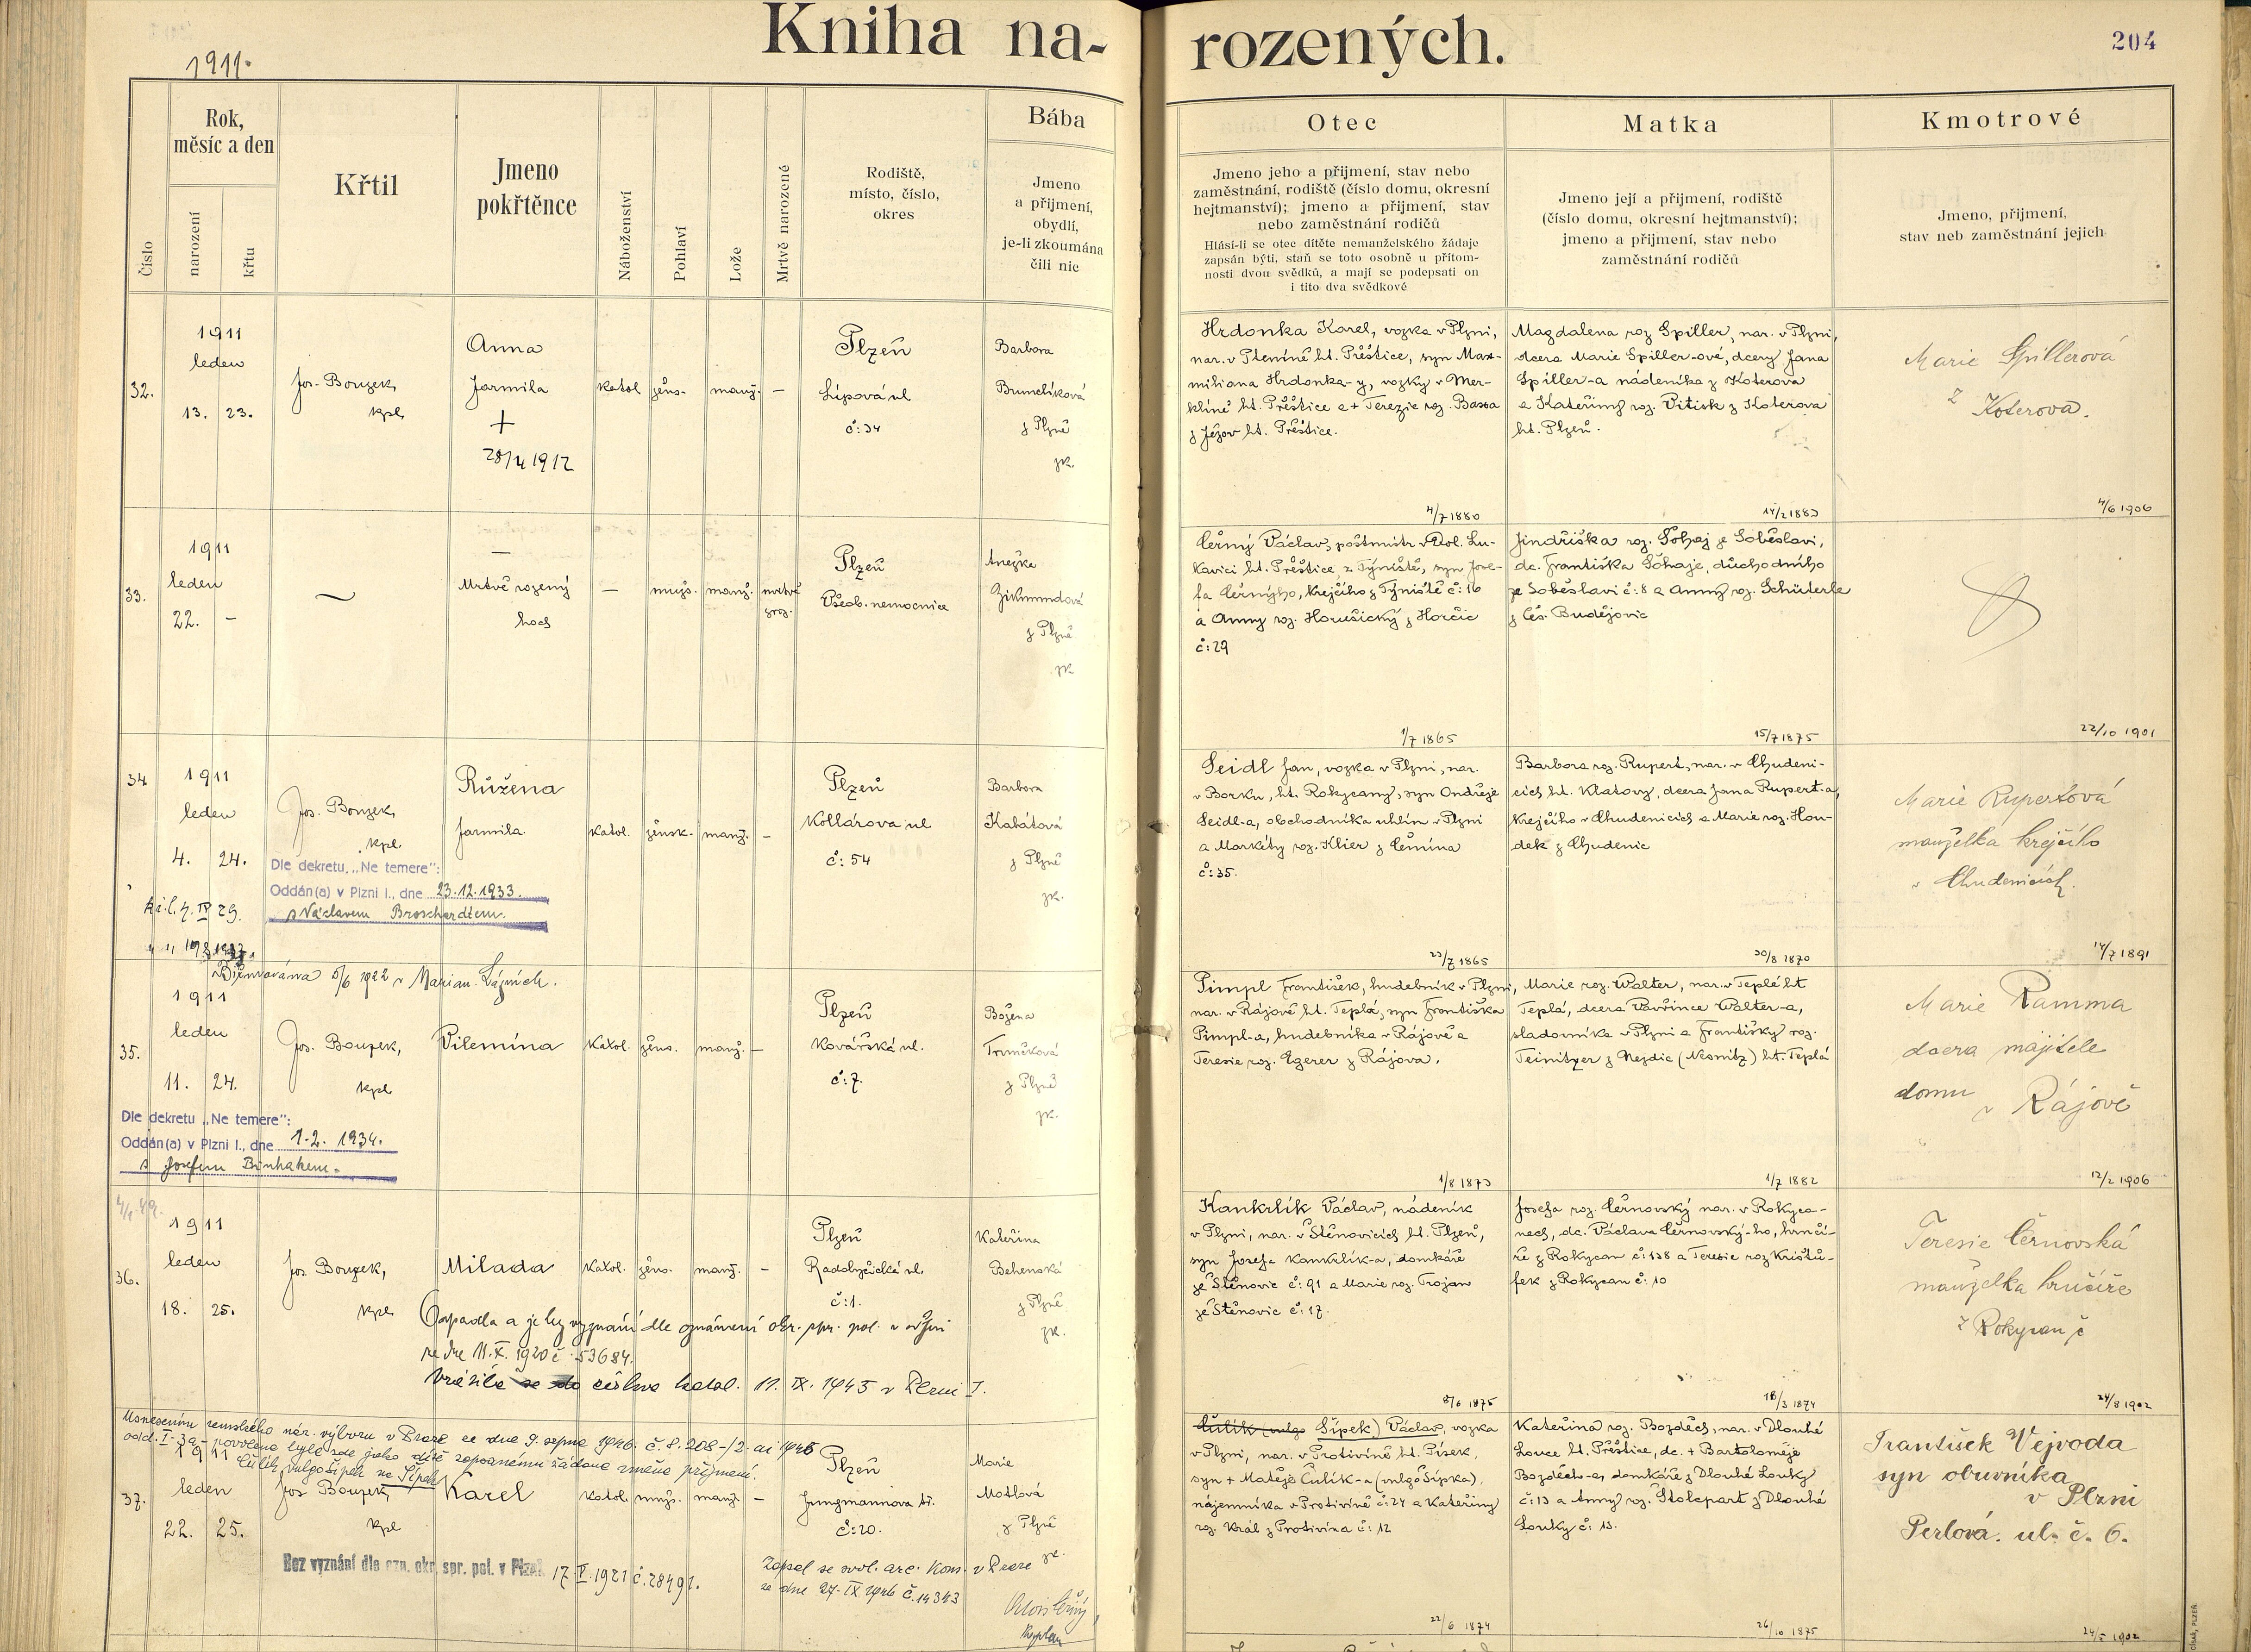 Kniha na-
rozených.
204
1911.
Číslo
Rok,
měsíc a den
narození
křtu
Křtil
Jmeno
pokřtěnce
Náboženství
Pohlaví
Lože
Mrtvě narozené
Rodiště,
místo, číslo,
okres
Bába
Jmeno
a přijmení,
obydlí,
je-li zkoumána
čili nic
Otec
Jmeno jeho a přijmení, stav nebo
zaměstnání, rodiště (číslo domu, okresní
hejtmanství); jmeno a přijmení, stav
nebo zaměstnání rodičů
Hlásí-li se otec dítěte nemanželského žádaje
zapsán býti, staň se toto osobně u přítom-
nosti dvou svědků, a mají se podepsati on
i tito dva svědkové
Matka
Jmeno její a přijmení, rodiště
(číslo domu, okresní hejtmanství);
jmeno a přijmení, stav nebo
zaměstnání rodičů
Kmotrové
Jmeno, přijmení,
stav neb zaměstnání jejich
32.
1911
leden
13. 23.
Jos. Bouzek,
kpl.
Anna
Jarmila
+
28/4 1912
katol. žens. manž. —
Plzeň
Lipová ul
č: 34
Barbora
Brunclíková
z Plzně
zk.
Hrdonka Karel, vozka v Plzni,
nar. v Pteníně ht. Přeštice, syn Max-
miliana Hrdonka-y, vozky v Mer-
klíně ht. Přeštice a + Terezie roz. Bassa
z Ježov ht. Přeštice.
4/7 1880
Magdalena roz Spiller, nar. v Plzni,
dcera Marie Spiller-ové, dcery Jana
Spiller-a nádeníka z Koterova
a Kateřiny roz. Vitisk z Koterova
ht. Plzeň.
14/2 1883
Marie Spillerová
z Koterova.
4/6 1906
33.
1911
leden
22. -
—
Mrtvě rozený
hoch
— mužs. manž. mrtvě
zroz.
Plzeň
Všeob. nemocnice
Anežka
Zikmundová
z Plzně
zk
Černý Václav, poštmistr v Dol. Lu-
kavici ht. Přeštice, z Týniště, syn Jose-
fa Černýho, krejčího z Týniště č: 16
a Anny roz. Horušický z Horčic
č: 29
1/7 1865
Jindřiška roz. Šohaj ze Soběslavi,
dc. Františka Šohaje, důchodního
ze Soběslavi č: 8 a Anny roz. Schüterle
z Čes. Budějovic
15/7 1875
22/10 1901
34
1911
leden
4. 24.
Jos. Bouzek,
kpl.
Dle dekretu „Ne temere":
Oddán(a) v Plzni I., dne 23.12.1933.
s Václavem Broschardtem.
Růžena
Jarmila.
katol. žensk. manž. —
Plzeň
Kollárova ul
č: 54
Barbora
Kabátová
z Plzně
zk.
Seidl Jan, vozka v Plzni, nar.
v Borku, ht. Rokycany, syn Ondřeje
Seidl-a, obchodníka uhlím v Plzni
a Markéty roz. Klier z Čemína
č: 35.
23/7 1865
Barbora roz. Rupert, nar. v Chudeni-
cích ht. Klatovy, dcera Jana Rupert-a,
krejčího v Chudenicích a Marie roz. Hou-
dek z Chudenic
30/8 1870
Marie Rupertová
manželka krejčího
v Chudenicích.
14/7 1891
Biřmována 5/6 1922 v Marian. Lázních.
35.
1911
leden
11. 24.
Jos. Bouzek,
kpl
Dle dekretu „Ne temere":
Oddán(a) v Plzni I., dne 1.2. 1934.
s Josefem Binhakem.
Vilemína
Katol. žens. manž. —
Plzeň
Kovářská ul.
č: 7.
Božena
Trnečková
z Plzně
zk.
Pimpl František, hudebník v Plzni,
nar. v Rájově ht. Teplá, syn Františka
Pimpl-a, hudebníka v Rájově a
Teresie roz. Egerer z Rájova.
1/8 1873
Marie roz. Walter, nar. v Teplé ht
Teplá, dcera Vavřince Walter-a,
sladovníka v Plzni a Františky roz.
Teinitzer z Nejdic (Nesnitz) ht. Teplá
1/7 1882
Marie Pamma
dcera majitele
domu v Rájově
12/2 1906
36.
1911
leden
18. 25.
Jos Bouzek,
kpl.
Milada
Katol. žens. manž. —
Plzeň
Radobyčická ul.
č: 1.
Kateřina
Behenská
z Plzně
zk.
Odpadla a je bez vyznání dle oznámení okr. spr. pol. v Plzni
ze dne 11. X. 1920 č. 53684.
Vrátila se do církve katol. 11. IX. 1945 v Plzni I.
Kankrlík Václav, nádeník
v Plzni, nar. v Štěnovicích ht. Plzeň,
syn Josefa Kankrlík-a, domkáře
ze Štěnovic č: 91 a Marie roz. Trojan
ze Štěnovic č: 17.
8/6 1875
Josefa roz. Černovský nar. v Rokyca-
nech, dc. Václava Černovský-ho, hrnčí-
ře z Rokycan č: 138 a Teresie roz Krištů-
fek z Rokycan č: 10
18/3 1874
Teresie Černovská
manželka hrnčíře
z Rokycan č
24/8 1902
Usnesením zemského nár. výboru v Praze ze dne 9. srpna 1946. č. 8. 208-/2-ai 1946
odd. I-3a- povolena byla zde jako dítě zapsanému žádaná změna příjmení.
Čulík vulgo Šípek na Šípek
37.
1911
leden
22. 25.
Jos Bouzek,
kpl
Karel
katol. mužs. manž. —
Plzeň
Jungmannova tř.
č: 20.
Marie
Motlová
z Plzně
zk.
Bez vyznání dle ozn. okr. spr. pol. v Plzni 17. V. 1921 č. 28491.
Zapsal se svol. arc. kons. v Praze
ze dne 27. IX 1946 č. 14343
Alois Černý
kaplan
Čulík (vulgo Šípek) Václav, vozka
v Plzni, nar. v Protivíně ht. Písek,
syn + Matěje Čulík-a (vulgo Šípka),
nájemníka v Protivíně č: 24 a Kateřiny
roz. Král z Protivína č: 12
22/6 1874
Kateřina roz. Bozděch, nar. v Dlouhé
Louce ht. Přeštice, dc. + Bartoloměje
Bozděch-a, domkáře z Dlouhé Louky
č: 13 a Anny roz. Štolcpart z Dlouhé
Louky č: 13.
26/10 1875
František Vejvoda
syn obuvníka
v Plzni
Perlová. ul. č. 6.
24/5 1902